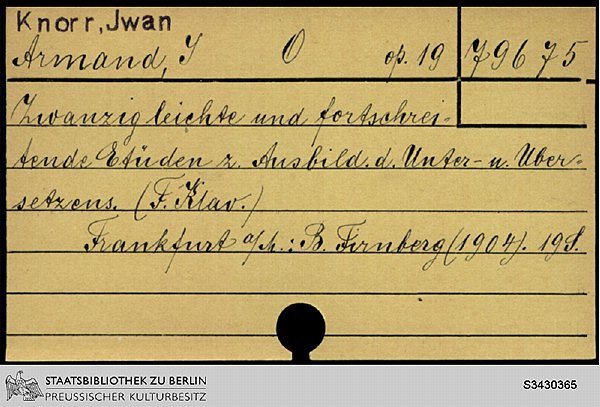 Knorr, Jwan
Armand, J O op. 19 79675
Zwanzig leichte und fortschrei-
tende Etüden z. Ausbild. d. Unter- u. Über-
setzens. (F. Klav.)
Frankfurt a/M.: B. Firnberg (1904). 19 S.
STAATSBIBLIOTHEK ZU BERLIN
PREUSSISCHER KULTURBESITZ
S3430365